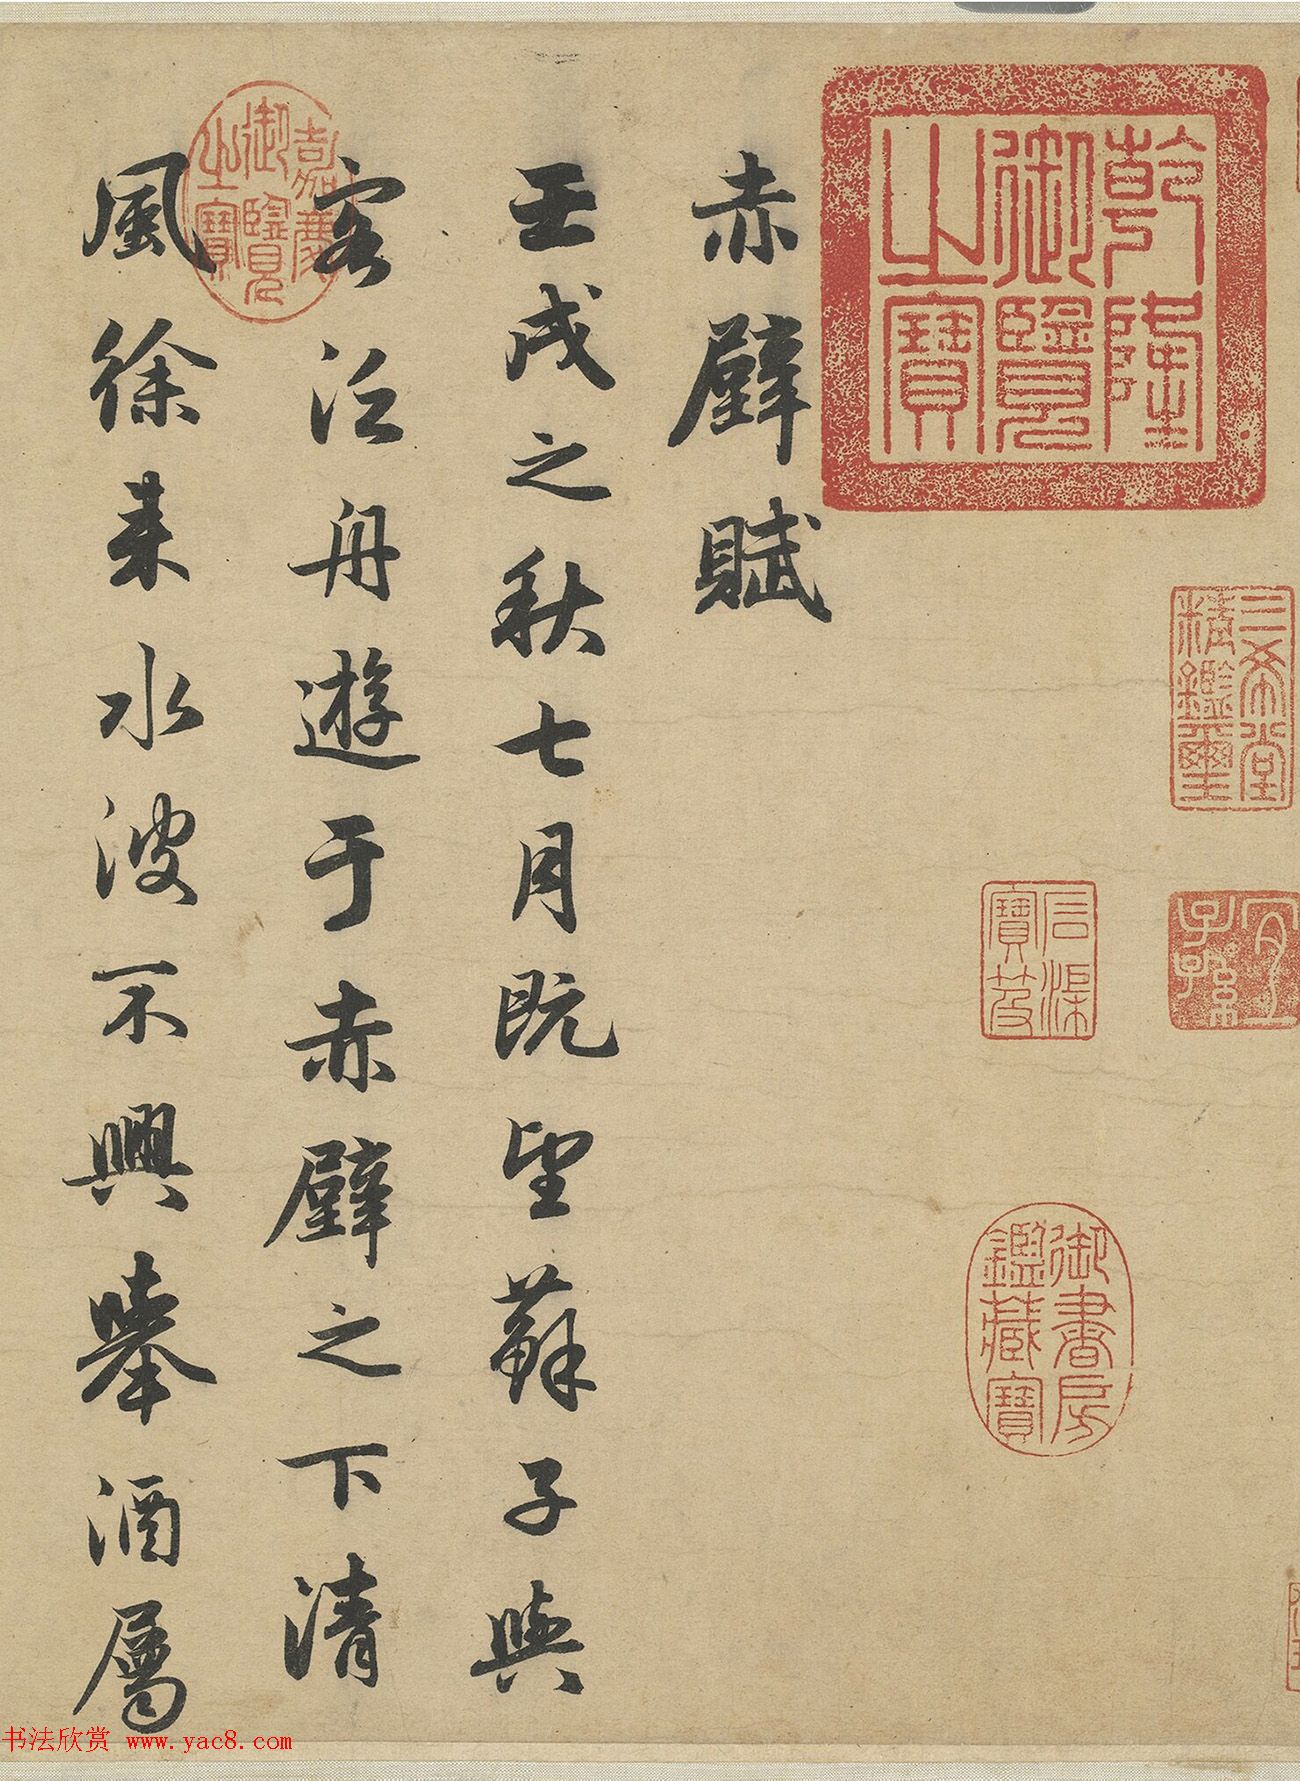 乾隆
御覽
之寶
三希堂
精鑑璽
宜
子孫
寶笈
御書房
鑑藏寶
赤壁賦
壬戌之秋七月既望蘇子與
客泛舟遊于赤壁之下清
嘉慶
御覽
之寶
風徐来水波不興舉酒屬
书法欣赏 www.yac8.com